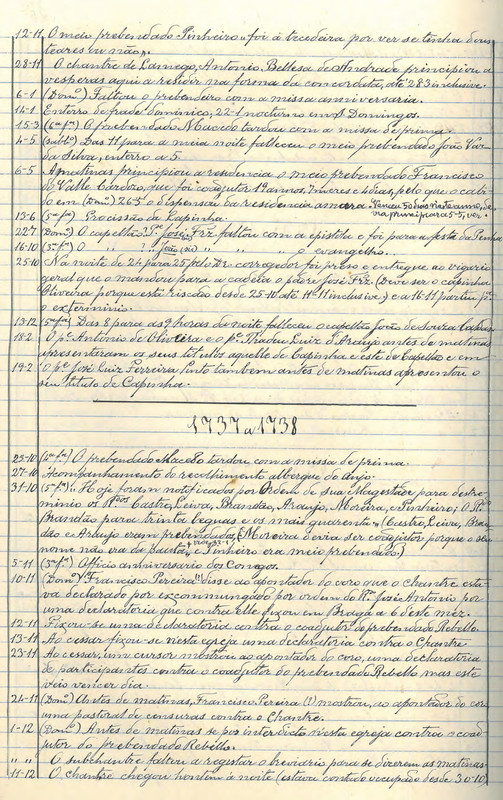 12-11 O meio prebendado Pinheiro "foi á tecedeira por ver se tinha dous
teares ou não".
28-11 O chantre de Lamego, Antonio Bellesa de Andrade principiou a
vesperas aqui a residir na forma da concordata, até 28-3 inclusive.
6-1 (Domº) Faltou o prebendeiro com a missa anniversaria.
14-1 Enterro de frade dominico, 22-1 nocturno em S. Domingos.
15-3 (6ª fª) O prebendado Macedo tardou com a missa de prima.
4-5 (sabbº) Das 11 para a meia noite falleceu o meio prebendado João Vaz
da Silva, enterro a 5.
6-5 A matinas principiou a residencia o meio prebendado Francisco
do Valle Cardozo, que foi coadjutor 12 annos, 7 meses e 4 dias, pelo que o cabi-
do em (Domº) 26-5 o dispensou da residencia amara.
13-6 (5ª fª) Procissão da Capinha.
22-7 (Domº) O capellão Pº José Frz faltou com a epistola e foi para a festa da Penha
16-10 (5ª fª) O " " ? João (sic) " " o evangelho.
25-10 Na noite de 24 para 25 pelo Dr. corregedor foi preso e entregue ao vigario
geral que o mandou para a cadeia o padre José Frz. (Deve ser o capinha
Oliveira porque está riscado desde 25-10 até 11-11 inclusive) e a 16-11 partiu pª
o exterminio.
13-12 (5ª fª) Das 8 para as 9 horas da noite falleceu o capellão João de Souza
18-2 O pº Antonio de Oliveira e o pº Thadeu Luiz d'Araujo antes de matinas
apresentaram os seus titulos aquelle de Capinha e este de Capellão e em
19-2 O pº José Luiz Ferreira Pinto tambem antes de matinas apresentou o
seu titulo de Capinha.
1737 a 1738
23-10 (4ª fª) O prebendado Macedo tardou com a missa de prima.
27-10 Acompanhamento do recolhimento albergue do Anjo.
31-10 (5ª fª) "Hoje foram notificados por Ordem de sua Magestade para dester-
minios os Rdos Castro, Leiva, Brandão, Araujo, Moreira, e Pinheiro; O Rdo
Brandão para trinta legoas e os mais quarenta". (Castro, Leiva, Bran-
dão e Araujo eram prebendados, (Moreira devia ser coadjutor porque o seu
nome não era da pauta) e Pinheiro era meio prebendado)
5-11 (3ª fª) Officio anniversario dos Conegos.
10-11 (Domº) "Francisco Pereira" disse ao apontador do coro que o chantre esta-
va declarado por excommungado por ordem do Rdo José Antonio por
uma declaratoria que contra elle fixou em Braga a 6 deste mez.
12-11 Fixou-se uma declaratoria contra o coadjutor do prebendado Rebello.
13-11 Ao cessar fixou-se nesta egreja uma declaratoria contra o Chantre.
23-11 Ao cessar, um cursor mostrou ao apontador do coro, uma declaratoria
de participantes contra o coadjutor do prebendado Rebello mas este
veio vencer dia.
24-11 (Domº) Antes de matinas, Francisco Pereira (?) mostrou, ao apontador do coro
uma pastoral de censuras contra o Chantre.
1-12 (Domº) Antes de matinas se poz interdicto nesta egreja contra o coad-
jutor do prebendado Rebello.
" " " O subchantre faltou a registar o breviario para se dizerem as matinas.
11-12 O chantre chegou hontem á noite (estava contado occupado desde 30-10)